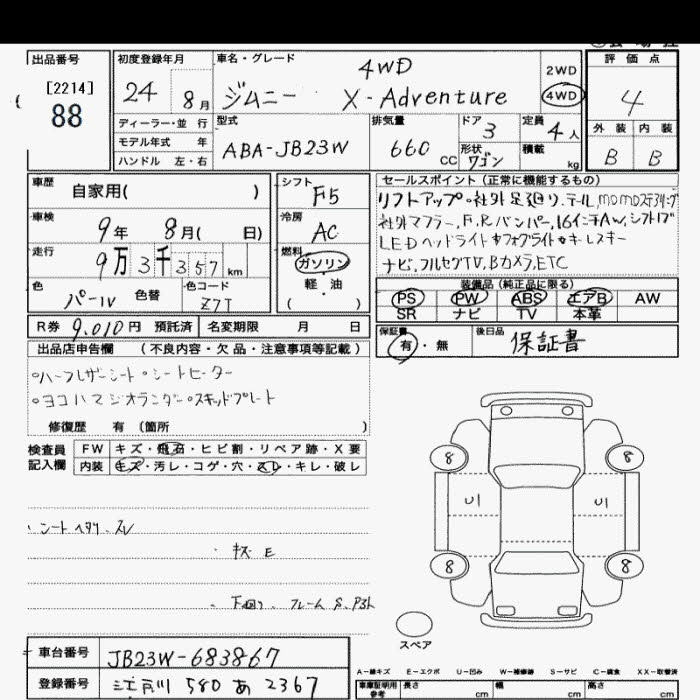 出品番号
[2214]
88
初度登録年月
24 8月
車名・グレード
4WD
ジムニー X-Adventure
2WD
4WD
評価点
4
外装 内装
B B
ディーラー・並行
モデル年式 年
ハンドル 左・右
型式
ABA-JB23W
排気量
660 CC
ドア 3
形状 ワゴン
定員 4人
積載 kg
車歴
自家用( )
車検
9年 8月( 日)
走行
9万3千357km
色
パール 色替
色コード
Z7T
シフト
F5
冷房
AC
燃料
ガソリン
軽・油
( )
セールスポイント(正常に機能するもの)
リフトアップ・社外足廻り、テール、MOMOステアリング
社外マフラー、F,Rバンパー、16インチAW、シフトノブ
LEDヘッドライト・フォグライト・キーレスキー
ナビ、フルセグTV、Bカメラ、ETC
装備品(純正品に限る)
PS PW ABS エアB AW
SR ナビ TV 本革
R券 9,010円 預託済 名変期限 月 日
保証書
有・無
後日品
保証書
出品店申告欄 (不良内容・欠品・注意事項等記載)
○ハーフレザーシート○シートヒーター
○ヨコハマジオランダー○スキッドプレート
修復歴 有(箇所 )
検査員
記入欄
FW キズ・飛石・ヒビ割・リペア跡・X要
内装 キズ・汚レ・コゲ・穴・スレ・キレ・破レ
・シートヘタリ・スレ
・キズ E
・下回り、フレーム S、P3ト
8 8
U1 U1
8 8
スペア
車台番号 JB23W-683867
登録番号 江戸川 580 あ 2367
A−線キズ E−エクボ U−凹み W−補修跡 S−サビ C−腐食 XX−取替済
車庫証明用
参考
長さ cm
幅 cm
高さ cm